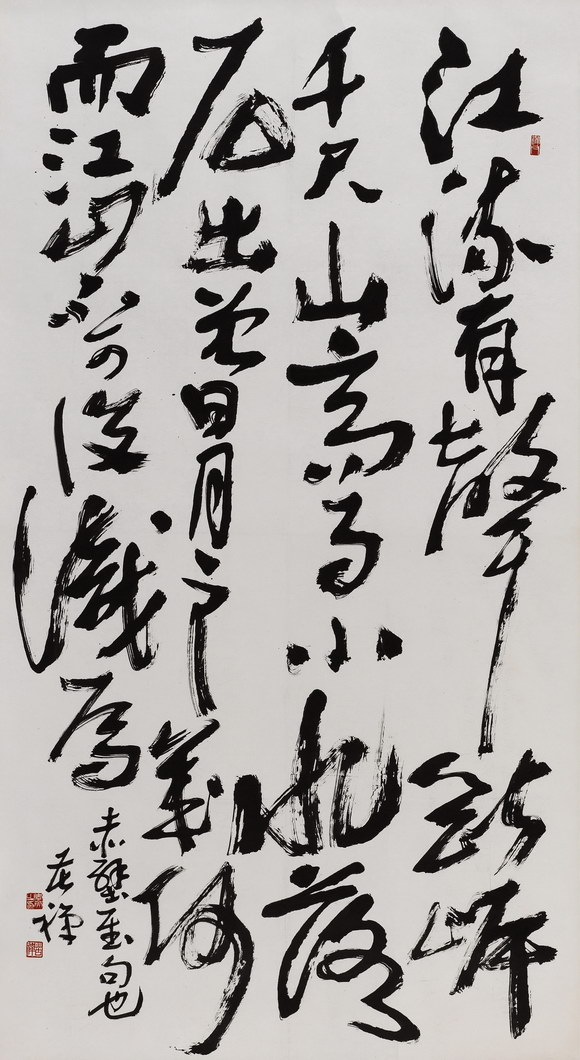 江流有聲斷岸
千尺山高月小水落
石出曾日月之幾何
而江山不可復識焉
赤壁句也
苦禪